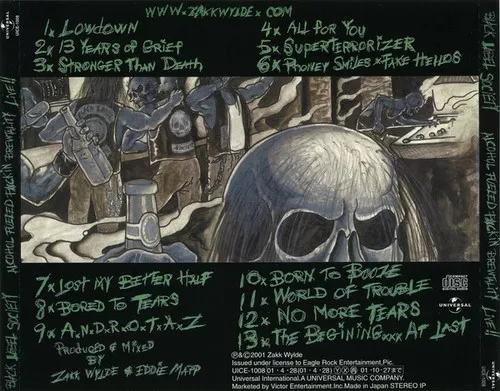 WWW.ZAKKWYLDE.COM
1x LOWDOWN
2x 13 YEARS OF GRIEF
3x STRONGER THAN DEATH
4x ALL FOR YOU
5x SUPERTERRORIZER
6x PHONEY SMILES x FAKE HELLOS
7x LOST MY BETTER HALF
8x BORED TO TEARS
9x A.N.D.R.O.T.A.Z
PRODUCED & MIXED
BY
ZAKK WYLDE & EDDIE MAPP
10x BORN TO BOOZE
11x WORLD OF TROUBLE
12x NO MORE TEARS
13x THE BEGINING xxx AT LAST
COMPACT
disc
DIGITAL AUDIO
UNIVERSAL
Ⓟ&©2001 Zakk Wylde
Issued under license to Eagle Rock Entertainment,Plc.
UICE-1008 01・4・28 (01・4・28) 01・10・27まで
Universal International.A UNIVERSAL MUSIC COMPANY.
Marketed by Victor Entertainment,Inc.Made in Japan STEREO
UNIVERSAL
UICE-1008
BLACK LABEL SOCIETY
ALCOHOL FUELED BREWTALITY LIVE!!
BLACK LABEL SOCIETY
ALCOHOL FUELED BREWTALITY LIVE!!